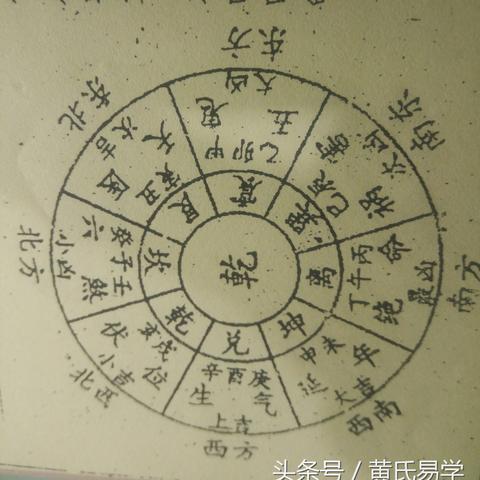 东方
大凶
五鬼
甲卯乙
震
东南
次凶
祸
巽
南方
最凶
绝命
丙午丁
离
西南
大吉
延年
未申
坤
西方
上吉
生气
庚酉辛
兑
西北
小吉
伏位
戌亥
乾
北方
小凶
六煞
壬子癸
坎
东北
次吉
天
丑
艮
乾
头条号 / 黄氏易学